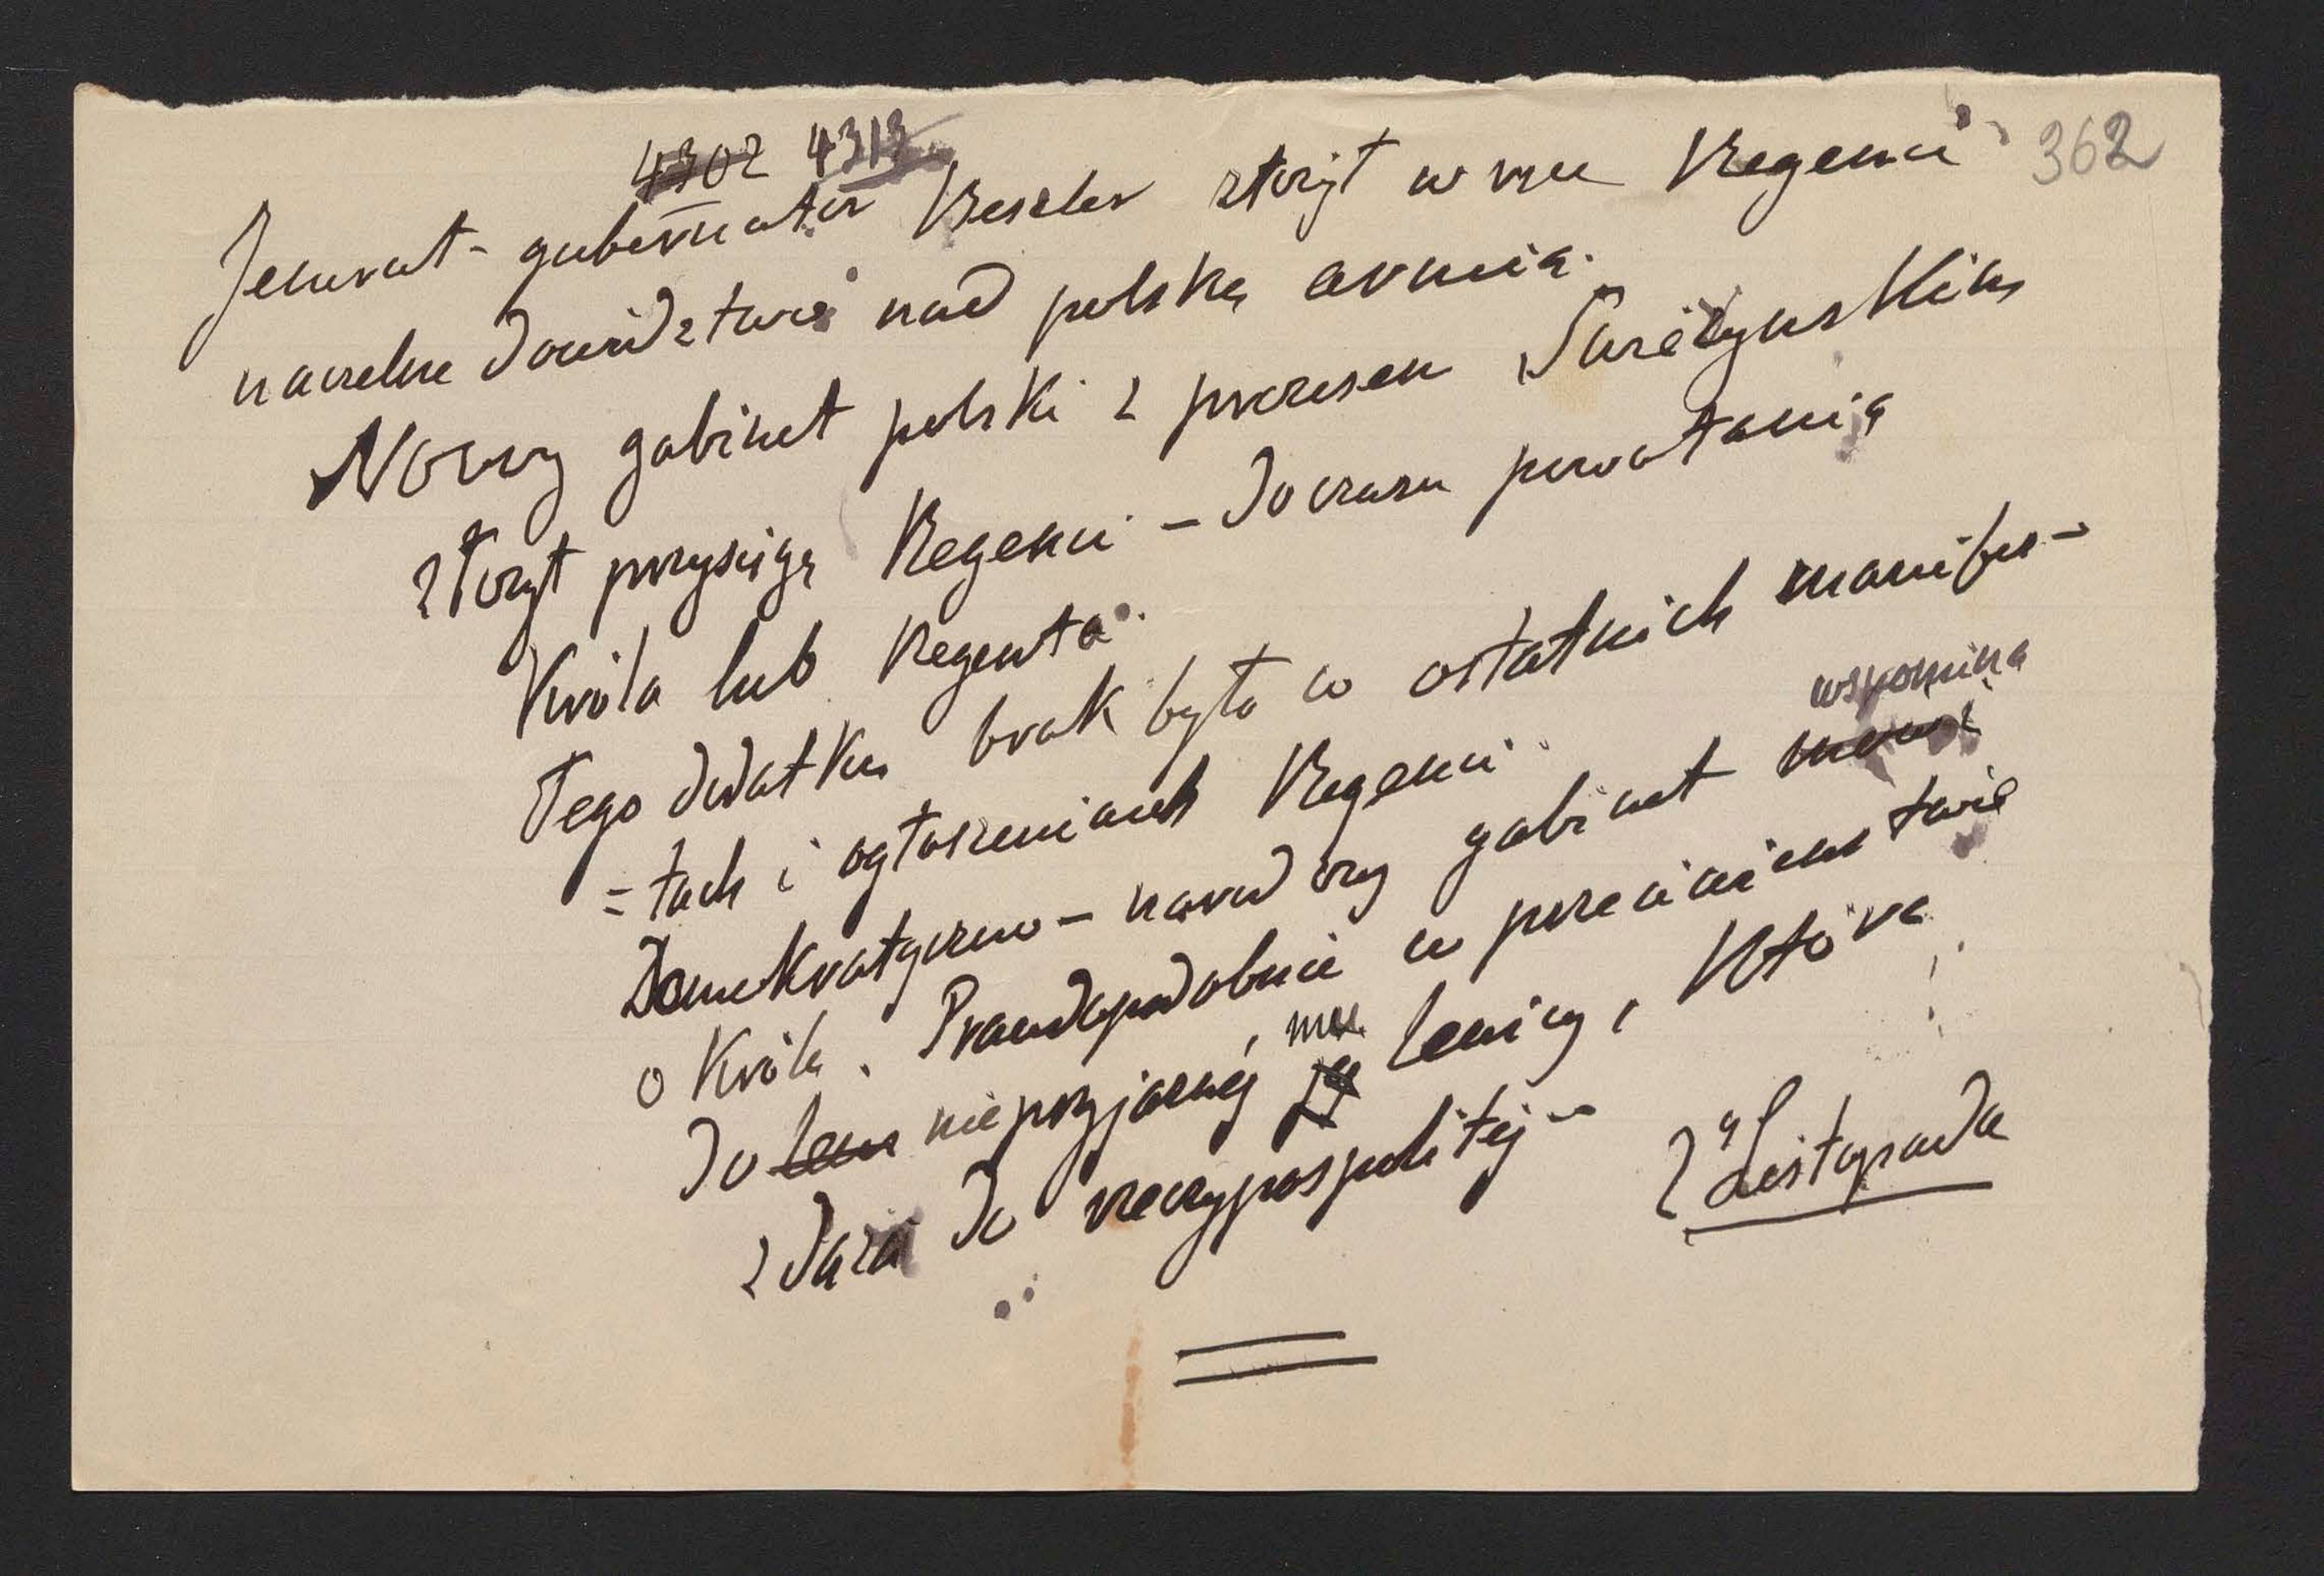 4302 4313
362
Jenerał-gubernator Beseler złożył w ręce Regencii
naczelne dowództwo nad polską armią.
Nowy gabinet polski z prezesem Świeżyńskim
złożył przysięgę Regencii – do czasu powołania
Króla lub Regenta.
Tego dodatku brak było w ostatnich manifes-
=tach i ogłoszeniach Regencii.
wspomina
Demokratyczno-narodowy gabinet mówi
o Królu. Prawdopodobnie w przeciwieństwie
do lew nieprzyjaznéj, mu jéj lewicy, która
zdąża do rzeczypospolitéj –
2 Listopada